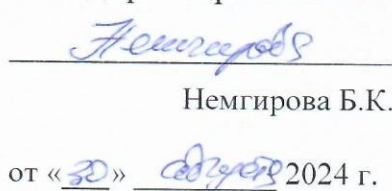 Немгирова
Немгирова Б.К.
от «30» августа 2024 г.